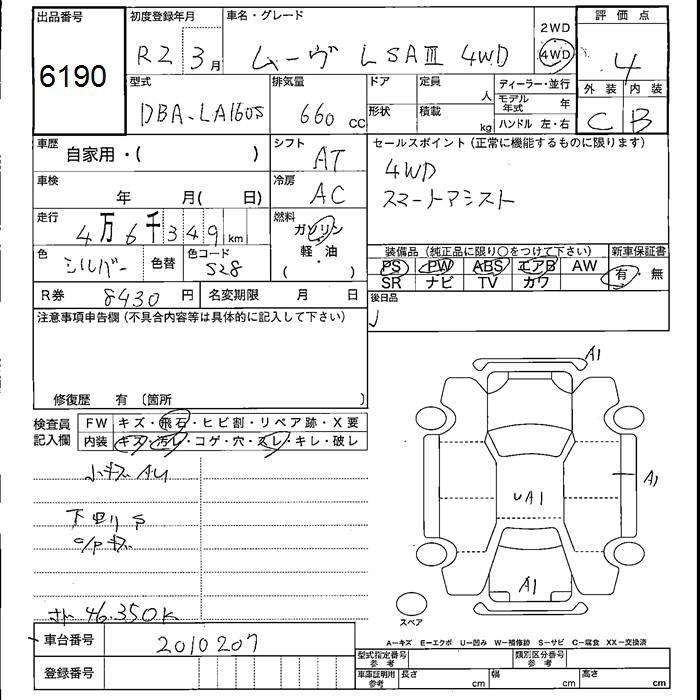 出品番号
6190
初度登録年月
R2 3月
車名・グレード
ムーヴ LSAⅢ 4WD
2WD
4WD
評価点
4
外装 内装
C B
型式
DBA-LA160S
排気量
660 cc
ドア
形状
定員
人
積載
kg
ディーラー・並行
モデル年式 年
ハンドル 左・右
車歴
自家用・( )
シフト
AT
セールスポイント(正常に機能するものに限ります)
4WD
スマートアシスト
車検
年 月( 日)
冷房
AC
走行
4万6千349km
燃料
ガソリン
軽・油
( )
色
シルバー
色替
色コード
S28
装備品(純正品に限り○をつけて下さい)
PS PW ABS エアB AW
SR ナビ TV カワ
新車保証書
有・無
R券 8430円
名変期限 月 日
後日品
注意事項申告欄(不具合内容等は具体的に記入して下さい)
修復歴 有〔箇所 〕
検査員
記入欄
FW キズ・飛石・ヒビ割・リペア跡・X要
内装 キズ・汚レ・コゲ・穴・スレ・キレ・破レ
小キズ AU
下回り S
キズ
46.350K
A1
A1
UA1
A1
スペア
A-キズ E-エクボ U-凹み W-補修跡 S-サビ C-腐食 XX-交換済
車台番号
2010207
登録番号
型式指定番号
参考
類別区分番号
参考
車庫証明用
参考
長さ cm
幅 cm
高さ cm